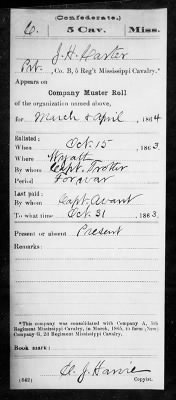 (Confederate.)
C. 5 Cav. Miss.
J. H. Carter
Pvt., Co. B, 5 Reg't Mississippi Cavalry.*
Appears on
Company Muster Roll
of the organization named above,
for March & April, 1864
Enlisted:
When Oct. 15, 1863
Where Wyatt
By whom Capt. Trotter
Period For war
Last paid:
By whom Capt. Avant
To what time Oct. 31, 1863
Present or absent Present
Remarks:
*This company was consolidated with Company A, 5th
Regiment Mississippi Cavalry, in March, 1865, to form (New)
Company G, 2d Regiment Mississippi Cavalry.
Book mark:
(642)
Copyist.